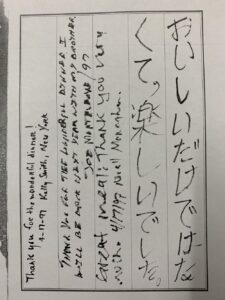 Thank you for the wonderful dinner!
4-17-97 Kelly Smith, New York
THANK YOU FOR THE WONDERFUL DINNER I
WILL BE BACK NEXT YEAR WITH MY BROTHER
JOE /97
Great meal! Thank you very
4/17/97
おいしいだけではな
くて、楽しいでした。